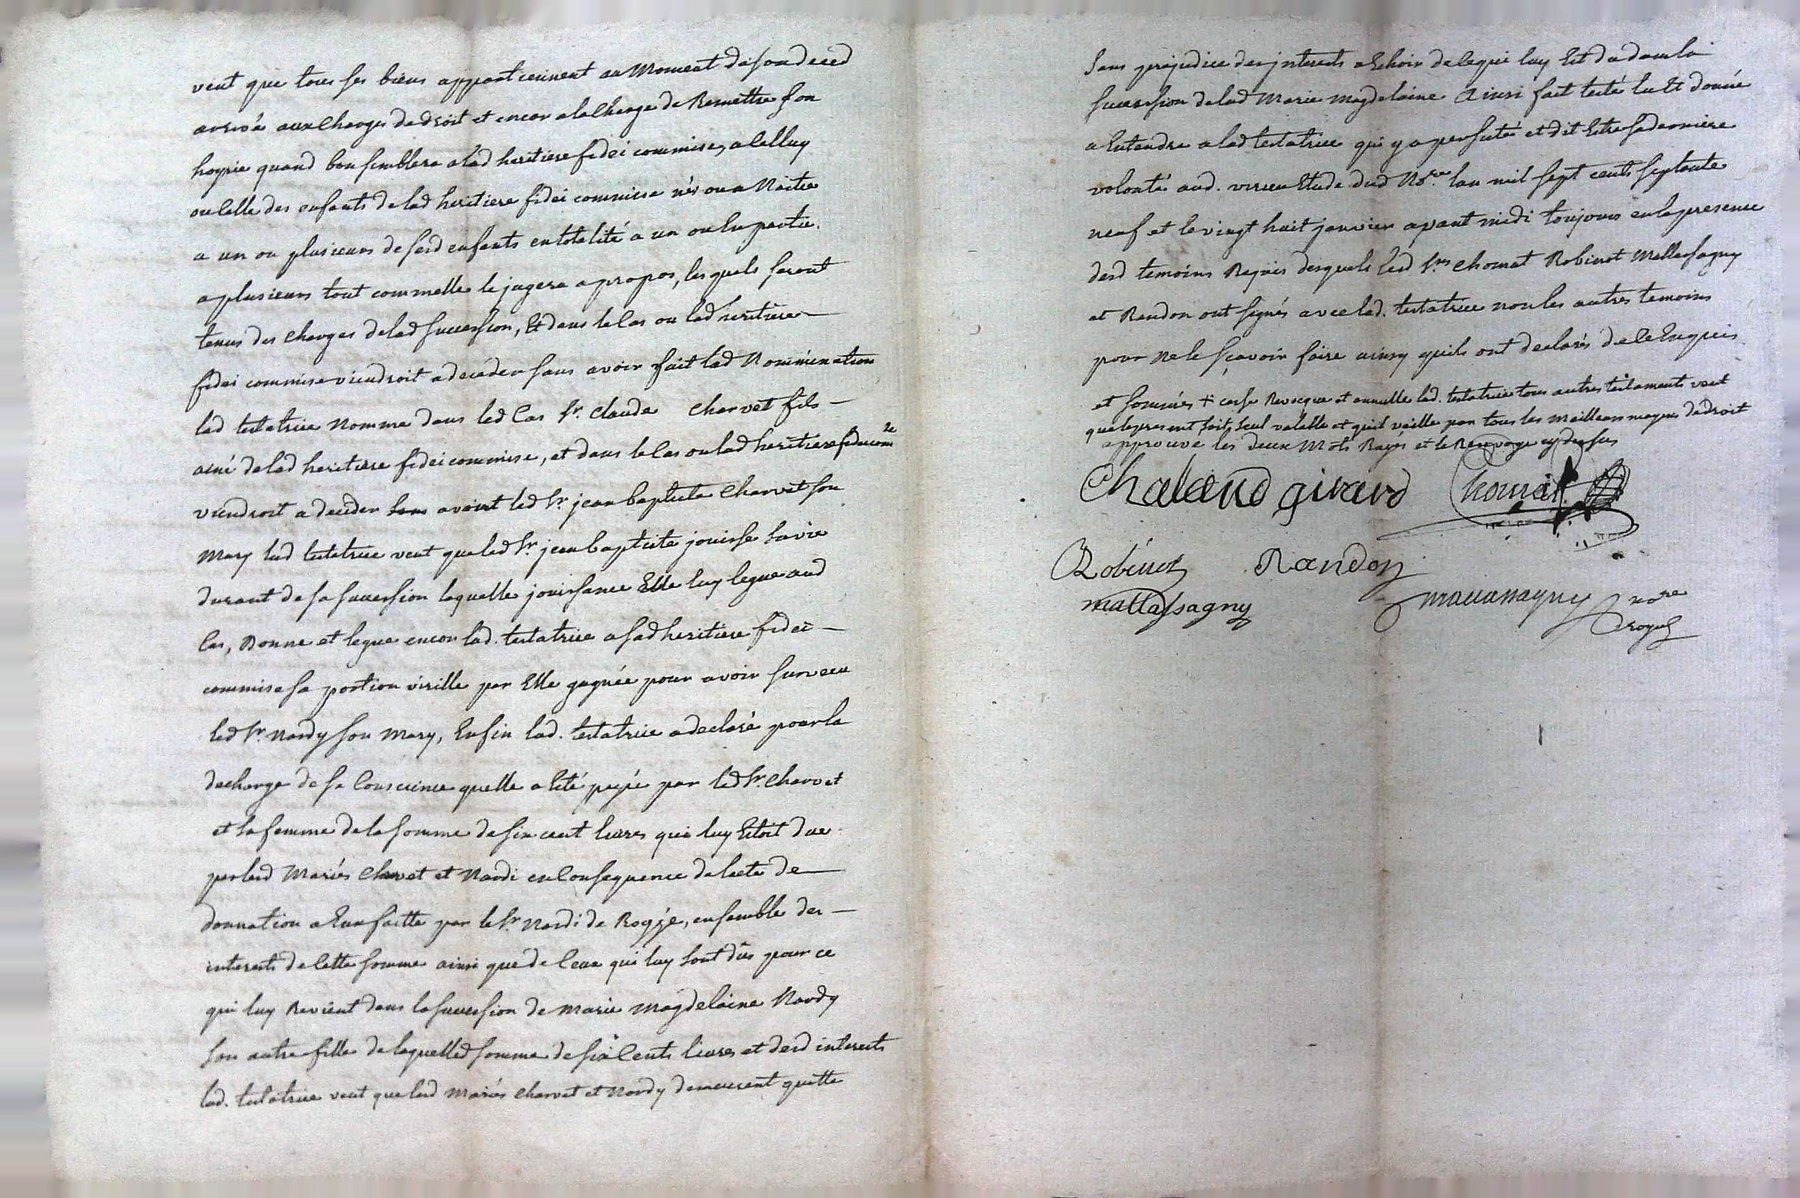 veut que tous ses biens appartiennent au moment de son deced
arrivée aux charges de droit et encor a la charge de Remettre son
hoyrie quand bon semblera a lad heritiere fidei commise, a celluy
ou celle des enfants de lad heritiere fidei commise nés ou a Naitre
a un ou plusieurs de sesd enfants en totalité a un ou en partie
a plusieurs tout comme elle le jugera a propos, lesquels seront
tenus des charges de lad succession, Et dans le cas ou lad heritiere
fidei commise viendroit a deceder sans avoir fait lad Nominnation
lad testatrice Nomme dans led Cas Sr. Claude Charvet fils
ainé de lad heritiere fidei commise, et dans le cas ou lad heritiere fideicom
viendroit a deceder avant led Sr. jean baptiste Charvet son
Mary lad testatrice veut que led Sr. jean baptiste jouisse sa vie
durant de sa succession laquelle jouissance Elle luy legue aud
Cas, Donne et legue encor lad. testatrice a sad heritiere fidei
commise sa portion virille par Elle gagnée pour avoir survecu
led Sr. Nardy son Mary, Enfin lad. testatrice a declaré pour la
decharge de sa Conscience quelle a Eté payée par led Sr. Charvet
et sa femme de la somme de six cent livres qui luy Etoit due
par lesd Mariés Charvet et Nardi en Consequence de lacte de
donnation a Eux faitte par le Sr. Nardi de Rogje, ensemble des
interests de Cette somme ainsi que de Ceux qui luy sont dûs pour ce
qui luy Revient dans la succession de Marie Magdelaine Nardy
Son autre fille de laquelled somme de six Cents livres et desd interests
lad. testatrice veut que lesd Mariés Charvet et Nardy demeurent quitte
Sans prejudice des jnterests a Echoir de ce qui luy Est dû dans la
succession de lad Marie Magdelaine Ainsi fait testé lu Et donné
a Entendre a lad testatrice qui y a persisté et dit Etre sa derniere
volonté aud. virieu Etude dud Nore. lan mil sept cents septante
neuf et le vingt huit janvier avant midi toujours en la presence
desd temoins Requis desquels lesd Srs Chomat Robinot Mallassagny
et Randon ont signés avec lad. testatrice non les autres temoins
pour ne le sçavoir faire ainsy quils ont declarés de ce Enquis
et sommés + casse Revocque et annulle lad. testatrice tous autres testaments veut
que le present soit seul valable et quil vaille par tous les meilleurs moyens de droit
approuvé les deux Mots Rayés et le Renvoye cy dessus
Chaland girard Chomat
Robinot Randon
mallassagny mallassagny nore
royal